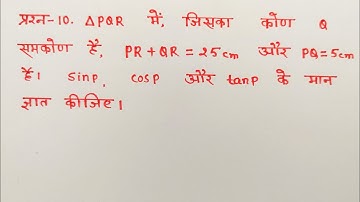 प्रश्न-10. ΔPQR में, जिसका कोण Q
समकोण है, PR + QR = 25 cm और PQ = 5 cm
है। sin P, cos P और tan P के मान
ज्ञात कीजिए।